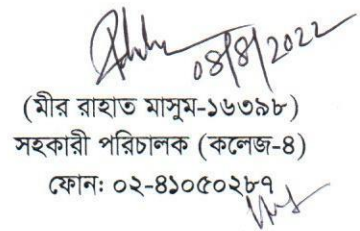 08/8/2022
(মীর রাহাত মাসুম-১৬৩৯৮)
সহকারী পরিচালক (কলেজ-৪)
ফোন: ০২-৪১০৫০২৮৭